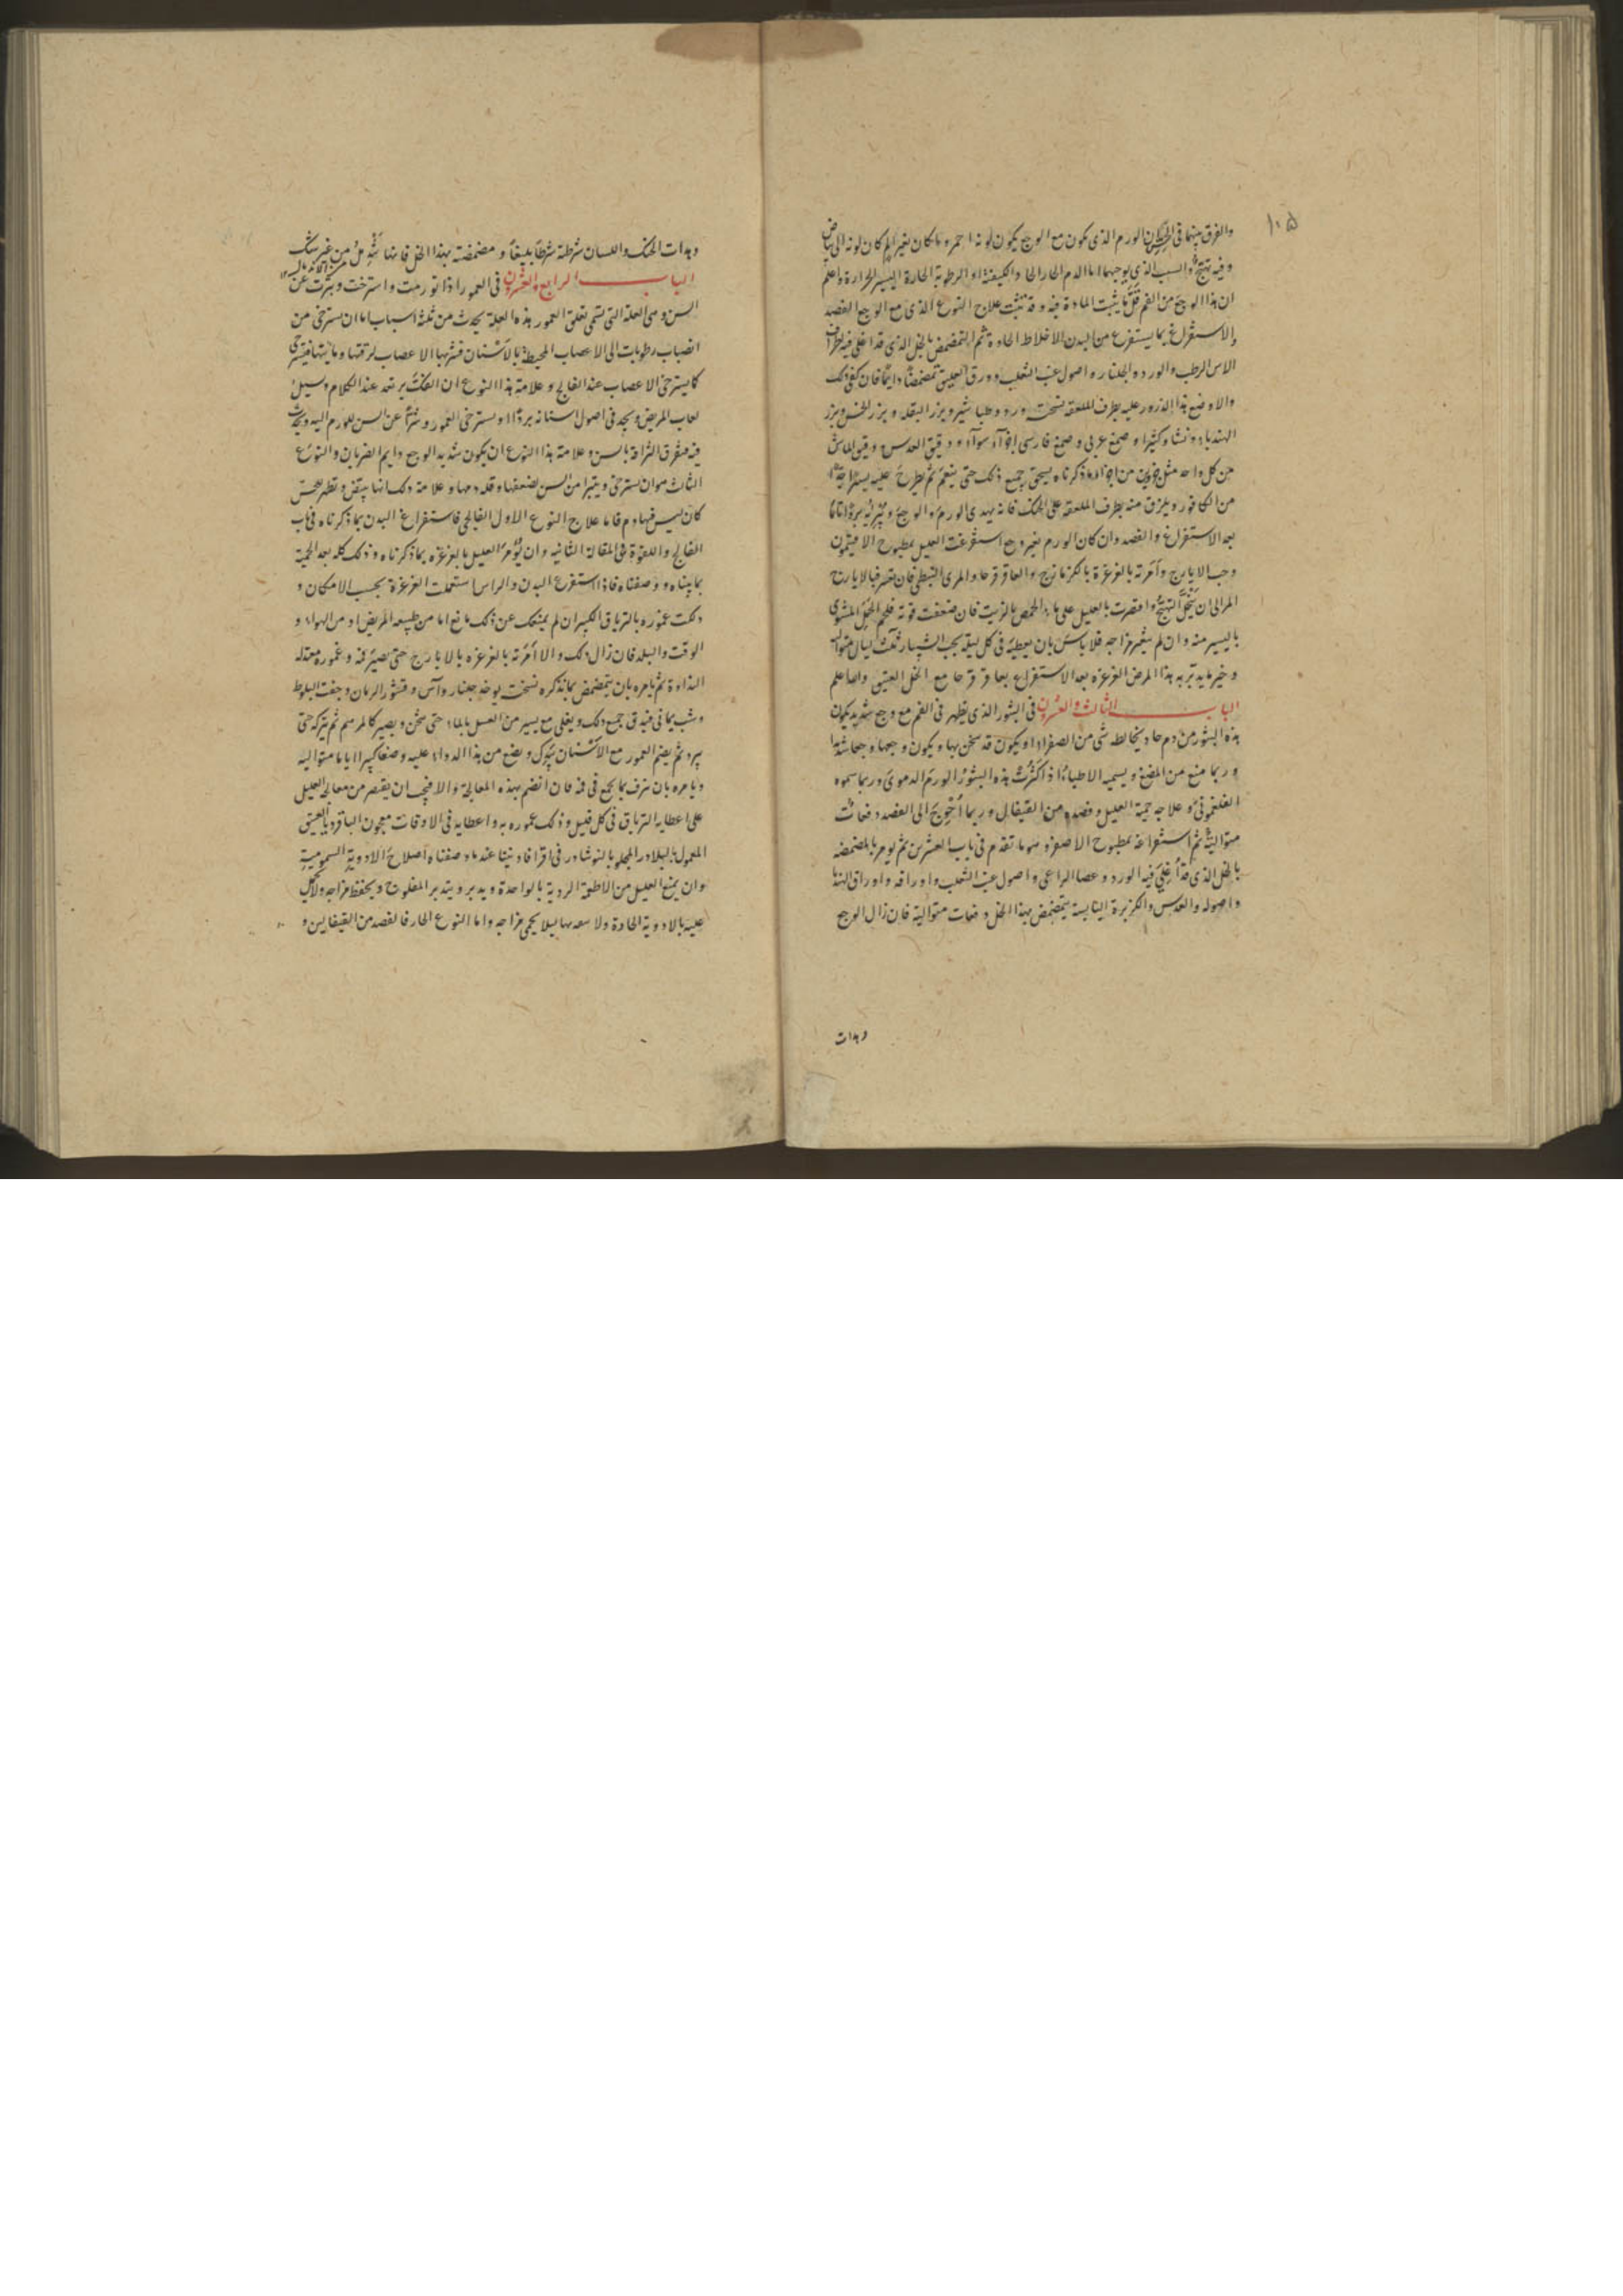 ١٠٥
والفرق بينهما في الحس ان الورم الذي يكون مع الوجع يكون لونه احمر وما كان بغير الم كان لونه الى بياض
وفيه تهيج والسبب الذي يوجبهما اما الدم الحار الحاد الكيفية او الرطوبة الحارة اليسير الحرارة واعلم
ان هذا الوجع من الفم قل ما يثبت المادة فيه وقد تثبت علاج النوع الذي مع الوجع الفصد
والاستفراغ بما يستفرغ من البدن الاخلاط الحادة ثم التمضمض بالخل الذي قد اغلي فيه اطراف
الاس الرطب والورد والجلنار واصول عنب الثعلب وورق العليق تمضمضا دايما فان كفى ذلك
والا وضع هذا الذرور عليه بطرف الملعقة نسخته ورد وطباشير وبزر البقلة وبزر الخس وبزر
الهندباء ونشا وكثيرا وصمغ عربي وصمغ فارسي اجزاء سواء ودقيق العدس ودقيق الماش
من كل واحد مثل جزوين من اجزاء ما ذكرناه يسحق جميع ذلك حتى ينعم ثم يطرح عليه يسيرا
من الكافور ويلزق منه بطرف الملعقة على الحنك فانه يهدي الورم والوجع ويبريه بروا تاما
بعد الاستفراغ والفصد وان كان الورم بغير وجع استفرغت العليل بمطبوخ الافيثمون
وحب الايارج وامرته بالغرغرة بالكزمازج والعاقرقرحا والمري النبطي فان تعسر فبالايارج
المر الى ان ينحل التهيج واقتصرت بالعليل على ماء الحمص بالزيت فان ضعفت قوته فلحم الحجل المشوي
باليسير منه وان لم يتغير مزاجه فلا باس بان يعطيه في كل ليلة حب الشبيار ثلث ليال متوالية
وخير ما يدبر به هذا المرض الغرغرة بعد الاستفراغ بعاقرقرحا مع الخل العتيق والله اعلم
الباب الثالث والعشرون في البثور الذي تظهر في الفم مع وجع شديد يكون
هذه البثور من دم حاد يخالطه شي من الصفراء او يكون قد سخن بها ويكون وجعها وجعا شديدا
وربما منع من المضغ ويسميه الاطباء اذا كثرت هذه البثور الورم الدموي وربما سموه
الفلغموني وعلاجه حمية العليل وفصده من القيفال وربما احوج الى الفصد دفعات
متوالية ثم استفراغه بمطبوخ الاصفر وهو ما تقدم في باب العشرين ثم يومر بالمضمضة
بالخل الذي قد اغلي فيه الورد وعصا الراعي واصول عنب الثعلب واوراقه واوراق الهندبا
واصوله والعدس والكزبرة اليابسة يتمضمض بهذا الخل دفعات متوالية فان زال الوجع
وهدات
وهدات الحنك واللسان شرطته شرطا بليغا ومضمضته بهذا الخل فانها تندمل من غير شك
الباب الرابع والعشرون في العمور اذا تورمت واسترخت وتبرت عن
السن وهي العلة التي تسمى تعلق العمور هذه العلة تحدث من ثلثة اسباب اما ان تسترخي من
انصباب رطوبات الى الاعصاب المحيطة بالاسنان فتشربها الاعصاب لرقتها ومائيتها فتسترخي
كما يسترخي الاعصاب عند الفالج وعلامة هذا النوع ان الفك يرتعد عند الكلام ويسيل
لعاب المريض ويجد في اصول اسنانه بردا او يسترخي العمور وتتبرا عن السن للورم اليه ويحدث
فيه متفرق التزاقه بالسن وعلامة هذا النوع ان يكون شديد الوجع دايم الضربان والنوع
الثالث هو ان يسترخي ويتبرا من السن لضعفها وقلة دمها وعلامة ذلك انها تبيض وتظهر للحس
كان ليس فيها دم فاما علاج النوع الاول الفالجي فاستفراغ البدن بما ذكرناه في باب
الفالج واللقوة في المقالة الثانية وان يومر العليل بالغرغرة بما ذكرناه وذلك كله بعد الحمية
بما بيناه ووصفناه فاذا استفرغ البدن والراس استعملت الغرغرة بحسب الامكان و
دلكت عموره بالترياق الكبير ان لم يمنعك عن ذلك مانع اما من طبيعة المريض او من الهواء و
الوقت والبلد فان زال ذلك والا امرته بالغرغرة بالايارج حتى يصير فمه وعموره معتدلة
النداوة ثم يامره بان يتمضمض بما نذكره نسخته يوخذ جلنار وآس وقشور الرمان وجفت البلوط
وشب يماني فيدق جميع ذلك ويغلى مع يسير من العسل بالماء حتى يثخن ويصير كالمرهم ثم يتركه حتى
يبرد ثم يضم العمور مع الاسنان ويضع من هذا الدواء عليه وضعا كبيرا اياما متوالية
ويامره بان يبزف بما يجمع في فمه فان انضم بهذه المعالجة والا فيجب ان يقتصر من معالجة العليل
على اعطايه الترياق في كل قليل وذلك عموره به واعطايه في الاوقات معجون البلاذر العتيق
المعمول بالبلادر المجلو بالنوشادر في اقرافادينا عند ما وصفناه اصلاح الادوية السمومية
وان يمنع العليل من الاطعمة الردية بالواحدة ويدبر بتدبير المفلوج ويحفظ مزاجه ولا يحمل
عليه بالادوية الحادة ليلا يحمي مزاجه واما النوع الحار فالفصد من القيفالين و